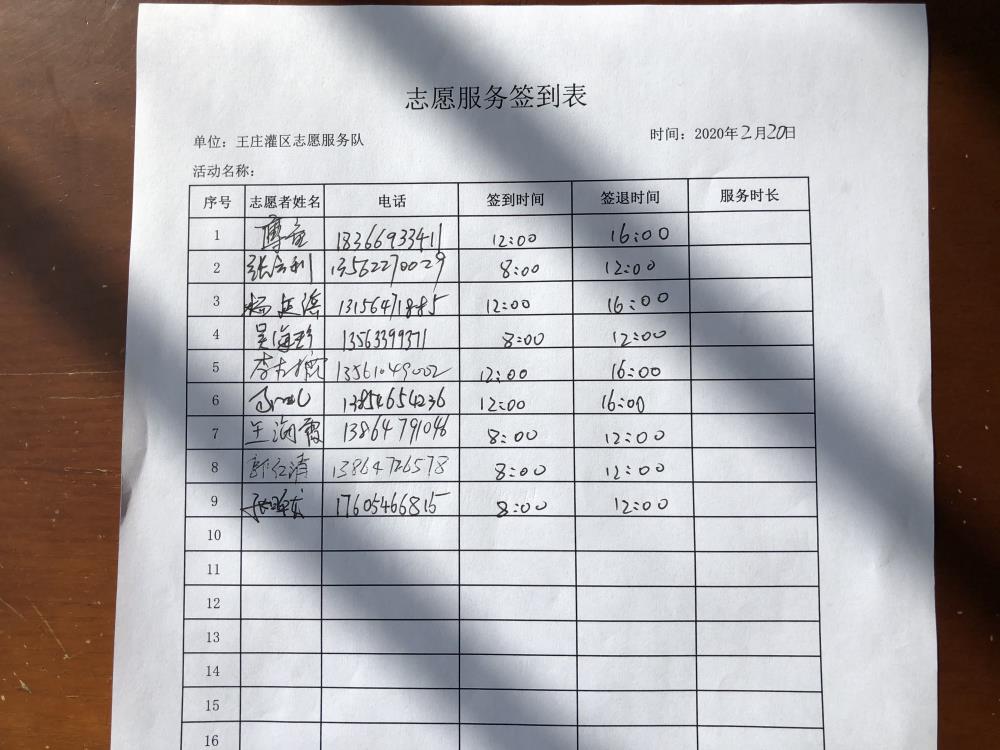 志愿服务签到表
单位：王庄灌区志愿服务队 时间：2020年2月20日
活动名称：
序号 志愿者姓名 电话 签到时间 签退时间 服务时长
1 18366933411 12:00 16:00
2 13562270029 8:00 12:00
3 杨延滨 13156471885 12:00 16:00
4 吴海珍 13563399371 8:00 12:00
5 13561049002 12:00 16:00
6 13854654236 12:00 16:00
7 王海霞 13864791046 8:00 12:00
8 郭仁清 13864726578 8:00 12:00
9 17605466815 8:00 12:00
10
11
12
13
14
15
16